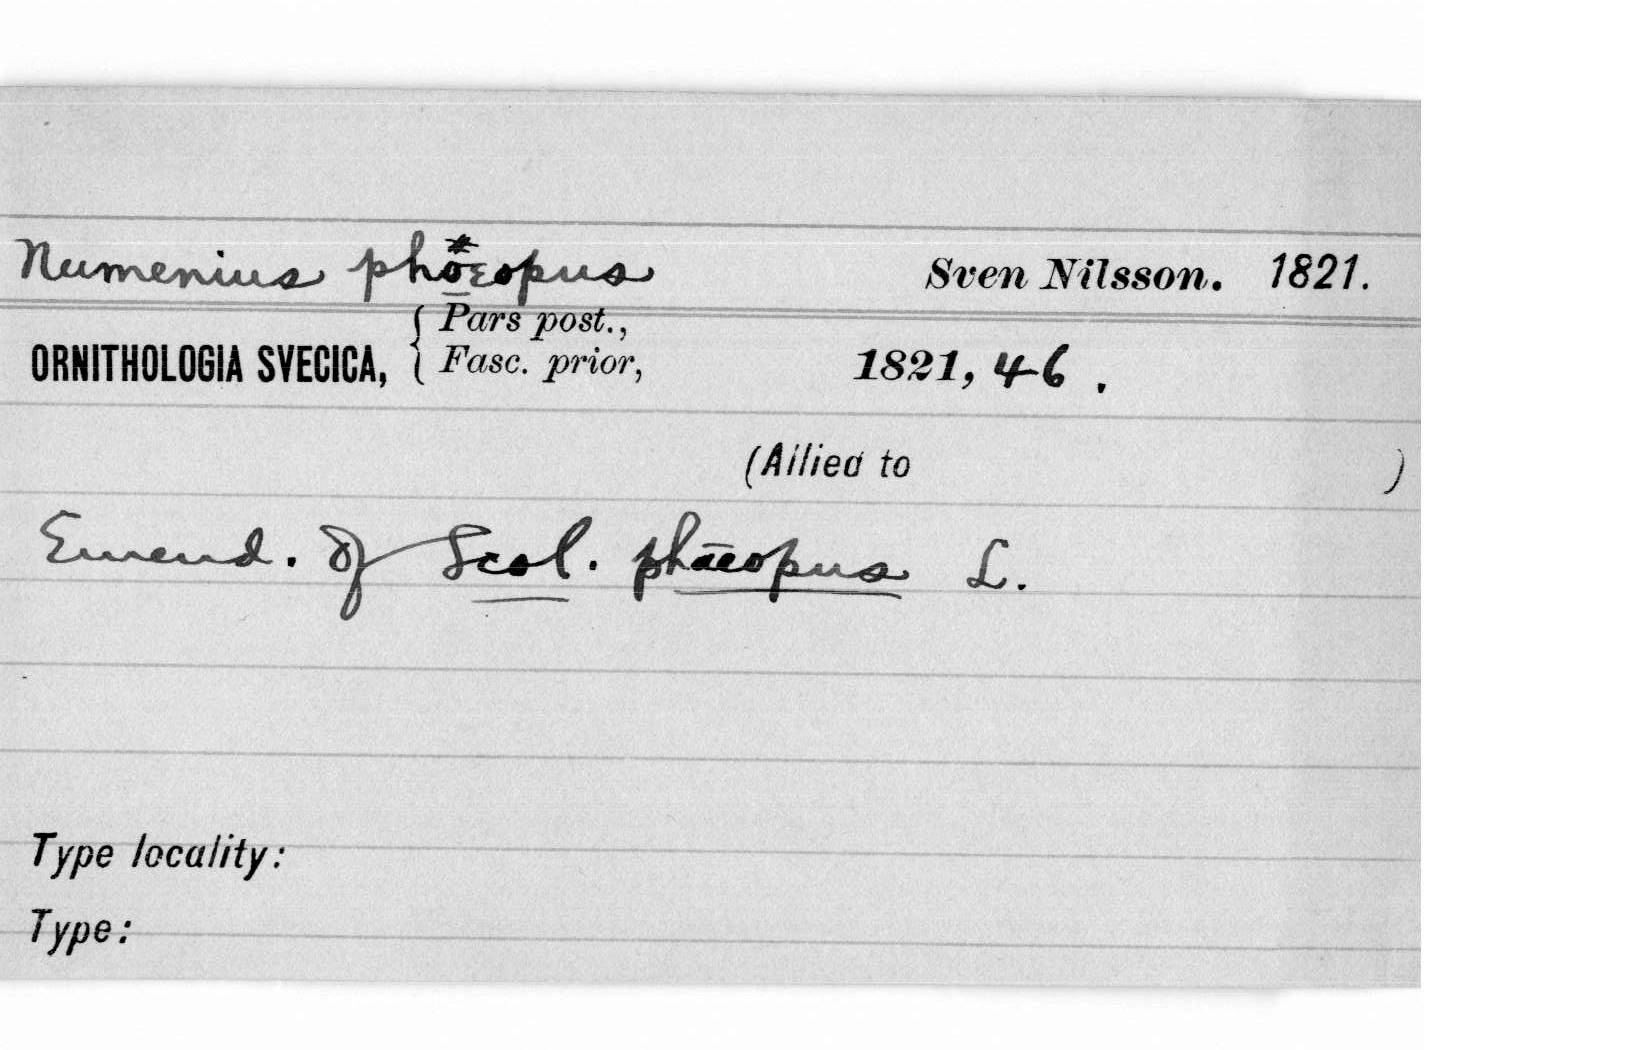 Numenius phœopus Sven Nilsson. 1821.
ORNITHOLOGIA SVECICA, { Pars post., Fasc. prior, 1821, 46.
(Allied to )
Emend. of Scol. phæopus L.
Type locality:
Type: